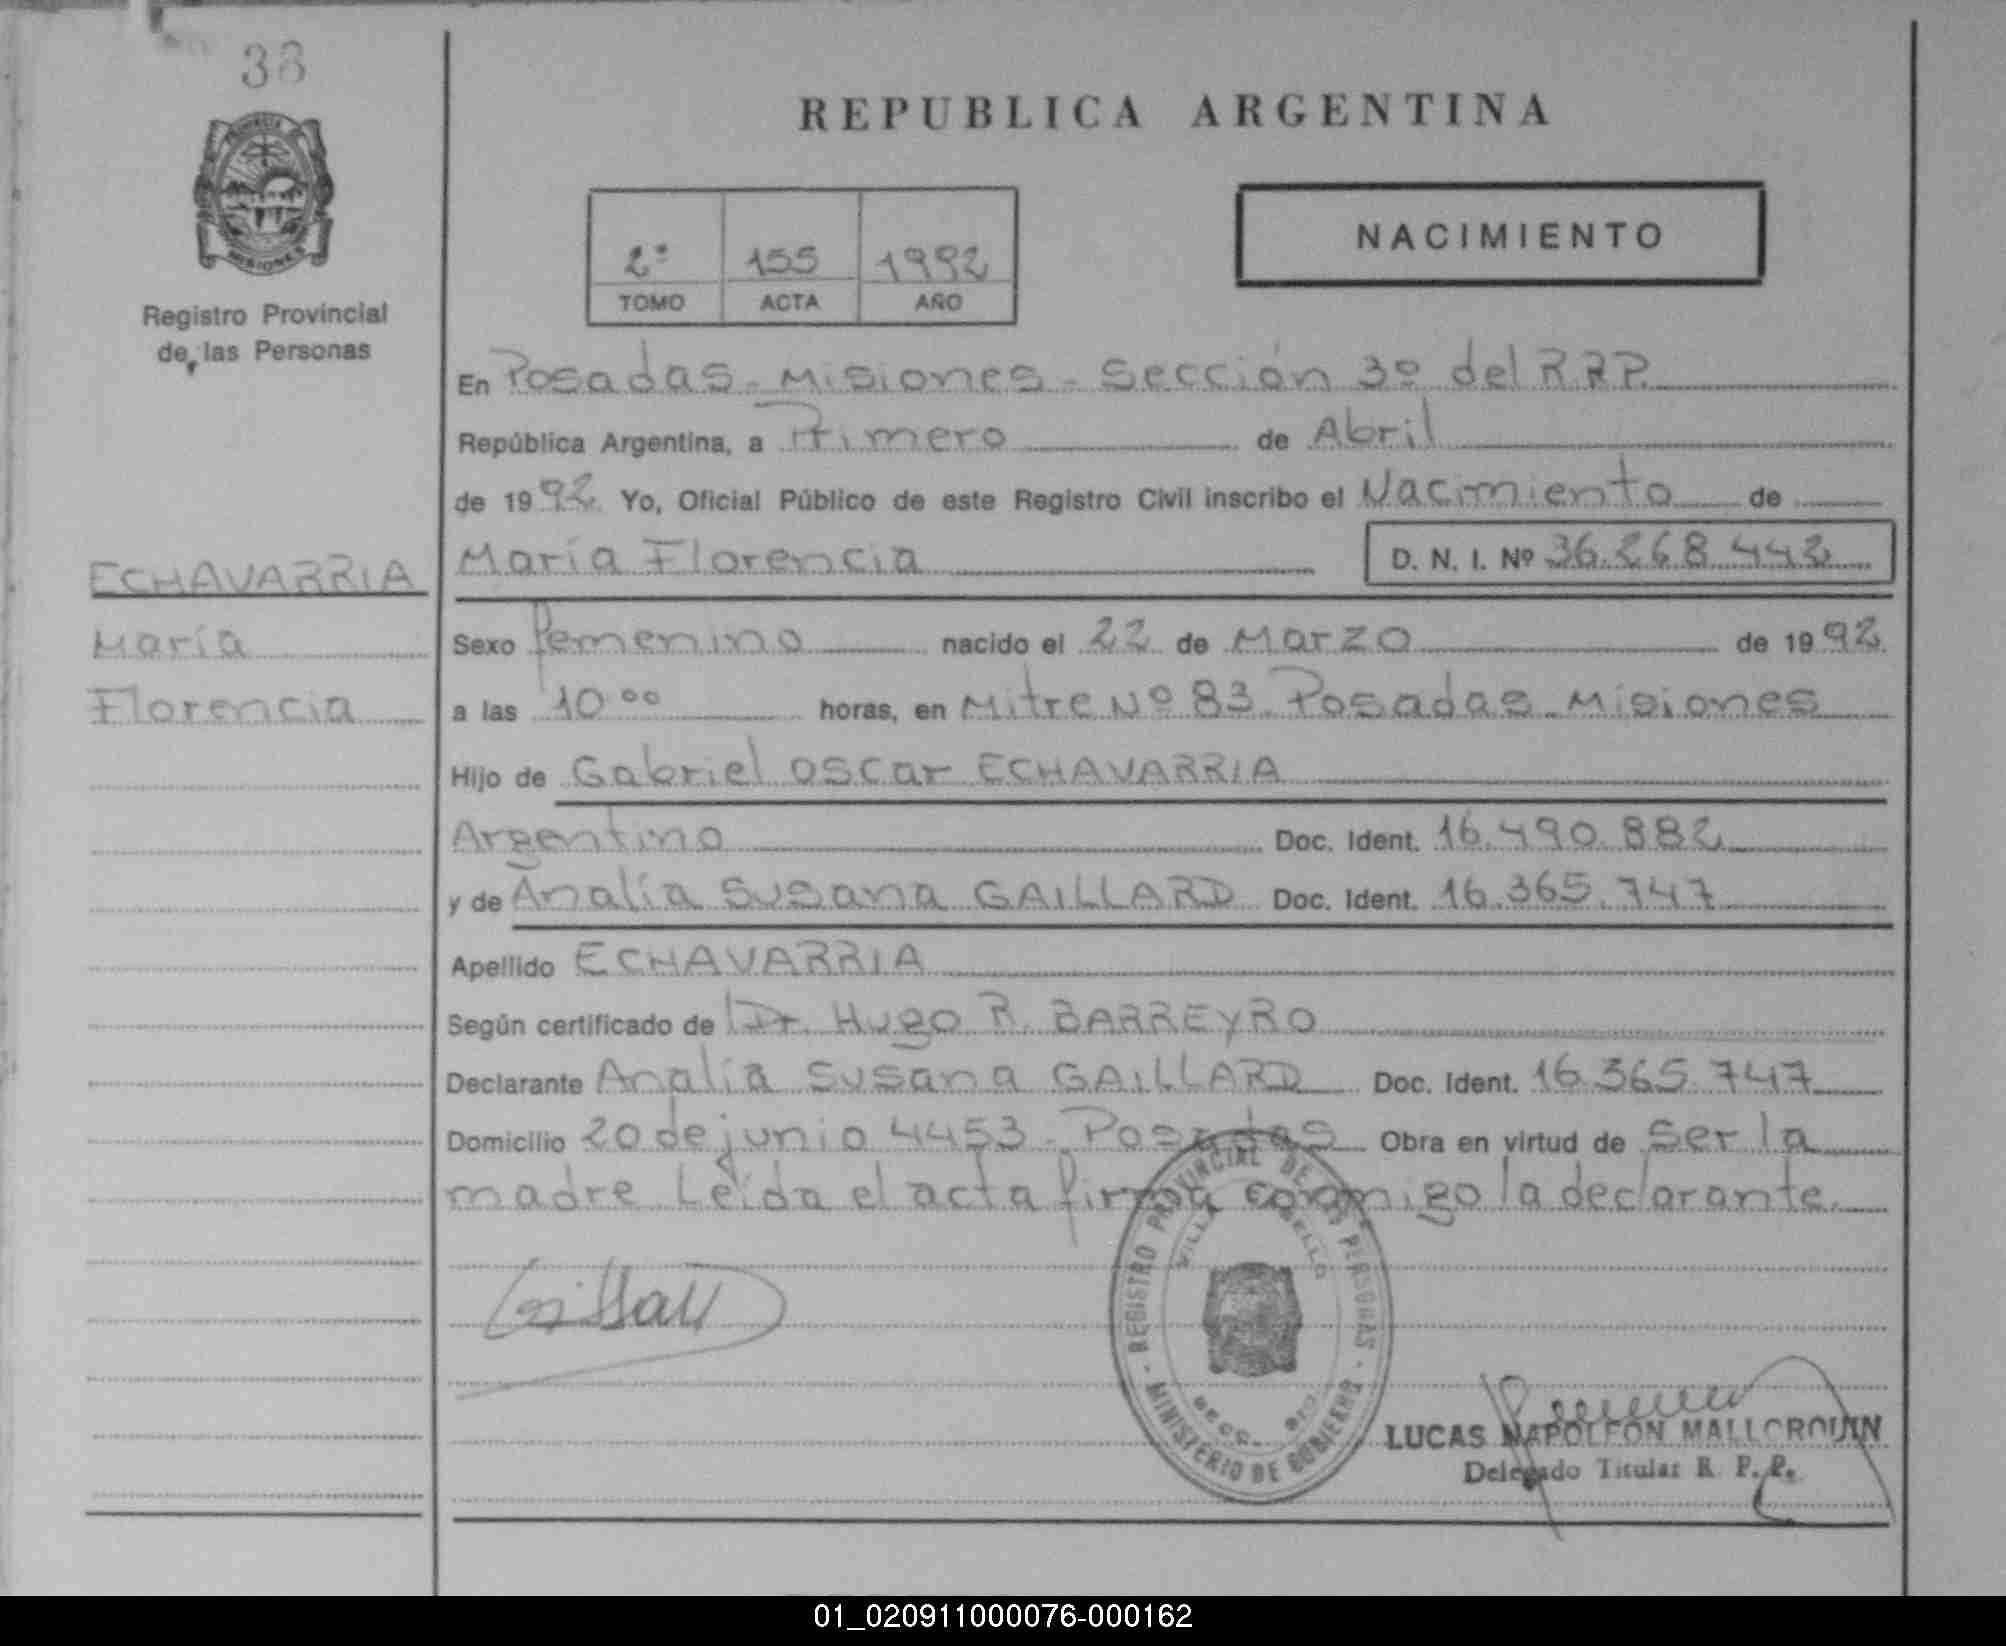 38
PROVINCIA DE
MISIONES
Registro Provincial
de las Personas
REPUBLICA ARGENTINA
2º 155 1992
TOMO ACTA AÑO
NACIMIENTO
En Posadas - Misiones - Sección 3º del R.R.P.
República Argentina, a Primero de Abril
de 1992 Yo, Oficial Público de este Registro Civil inscribo el Nacimiento de
ECHAVARRIA
María
Florencia
María Florencia D. N. I. Nº 36.268.442
Sexo femenino nacido el 22 de Marzo de 1992
a las 10 ºº horas, en Mitre Nº 83 Posadas Misiones
Hijo de Gabriel Oscar ECHAVARRIA
Argentino Doc. Ident. 16.490.882
y de Analía Susana GAILLARD Doc. Ident. 16.365.747
Apellido ECHAVARRIA
Según certificado de Dr. Hugo R. BARREYRO
Declarante Analía Susana GAILLARD Doc. Ident. 16.365.747
Domicilio 20 de junio 4453 - Posadas Obra en virtud de ser la
madre Leída el acta firma conmigo la declarante.
REGISTRO PROVINCIAL DE LAS PERSONAS
VILLA BELLO
SECC.
MINISTERIO DE GOBIERNO
Gaillard
LUCAS NAPOLEON MALLORQUIN
Delegado Titular R. P. P.
01_020911000076-000162